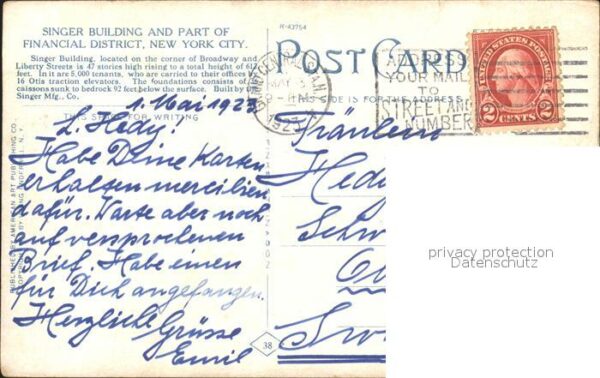 SINGER BUILDING AND PART OF
FINANCIAL DISTRICT, NEW YORK CITY.
Singer Building, located on the corner of Broadway and
Liberty Streets is 47 stories high rising to a total height of 612
feet. In it are 5,000 tenants, who are carried to their offices by
16 Otis traction elevators. The foundations consists of
caissons sunk to bedrock 92 feet below the surface. Built by the
Singer Mfg., Co.
R-43754
POST CARD
THIS SIDE IS FOR THE ADDRESS
ADDRESS
YOUR MAIL
TO
STREET AND
NUMBER
MAY
1923
UNITED STATES POSTAGE
2 CENTS 2
THIS SPACE FOR WRITING
1. Mai 1923
L. Hedy!
Habe Deine Karten
erhalten mercilien
dafür. Warte aber noch
auf versprochenen
Brief. Habe einen
für Dich angefangen.
Herzliche Grüsse
Emil
Fräulein
Hedy
Schw
Swi
38
PUBLISHED BY AMERICAN ART PUBLISHING CO.
privacy protection
Datenschutz